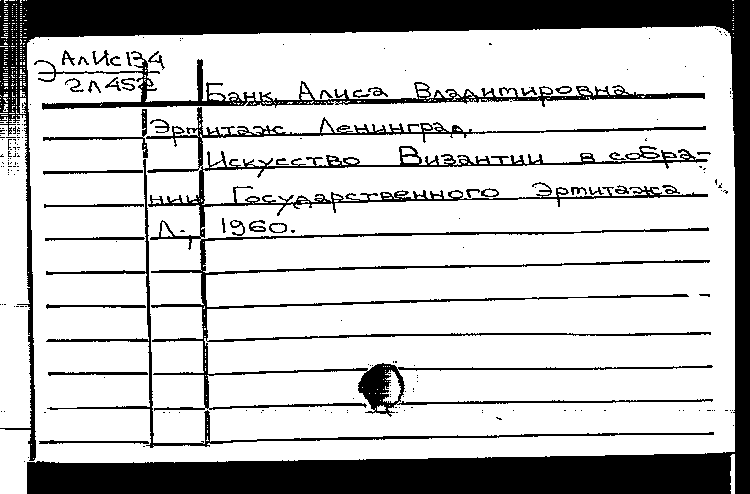 Э АлИс134
2Л452
Банк, Алиса Владимировна.
Эрмитаж. Ленинград.
Искусство Византии в собра-
нии Государственного Эрмитажа.
Л., 1960.